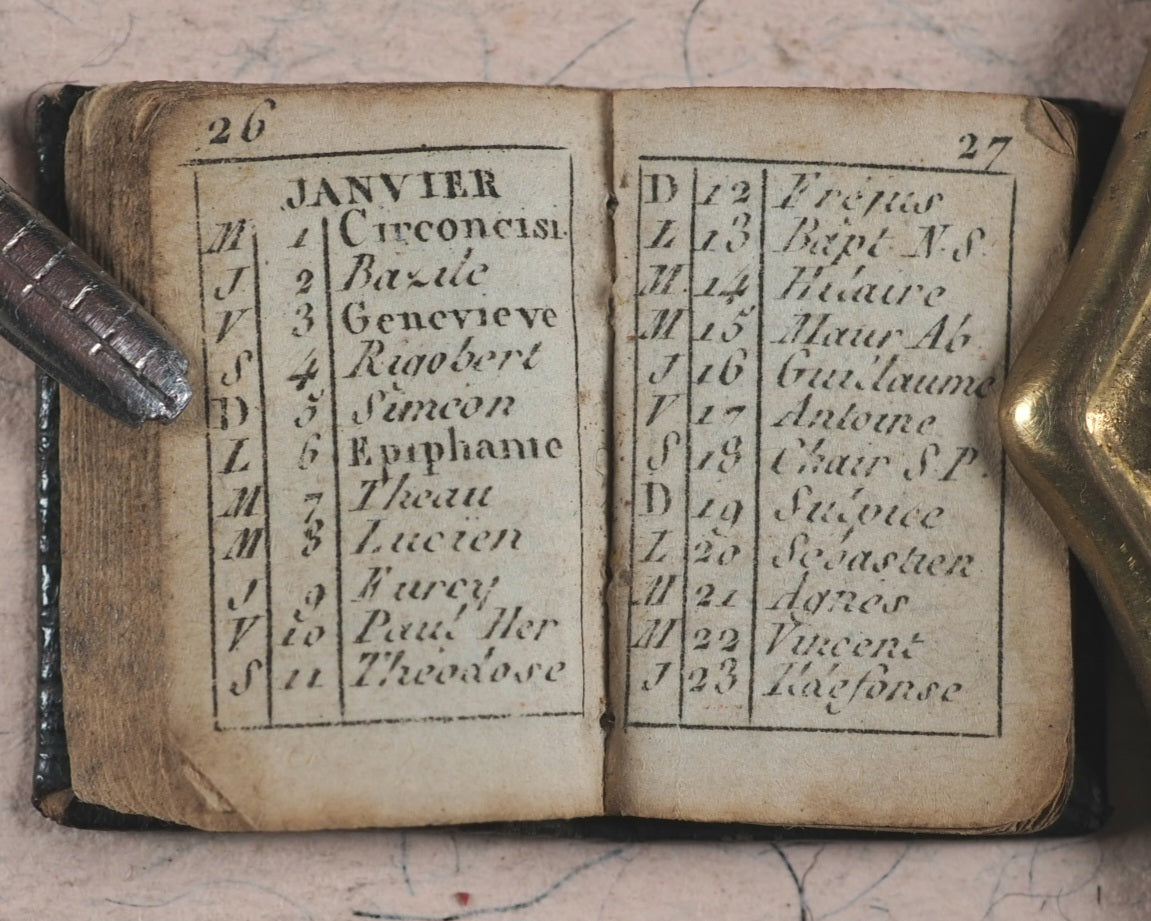 26
JANVIER
M 1 Circoncisi.
J 2 Bazile
V 3 Genevieve
S 4 Rigobert
D 5 Simeon
L 6 Epiphanie
M 7 Theau
M 8 Lucien
J 9 Furcy
V 10 Paul Her
S 11 Théodose
27
D 12 Fréjus
L 13 Bapt N.S.
M 14 Hilaire
M 15 Maur Ab
J 16 Guillaume
V 17 Antoine
S 18 Chair S P.
D 19 Sulpice
L 20 Sébastien
M 21 Agnès
M 22 Vincent
J 23 Ildefonse